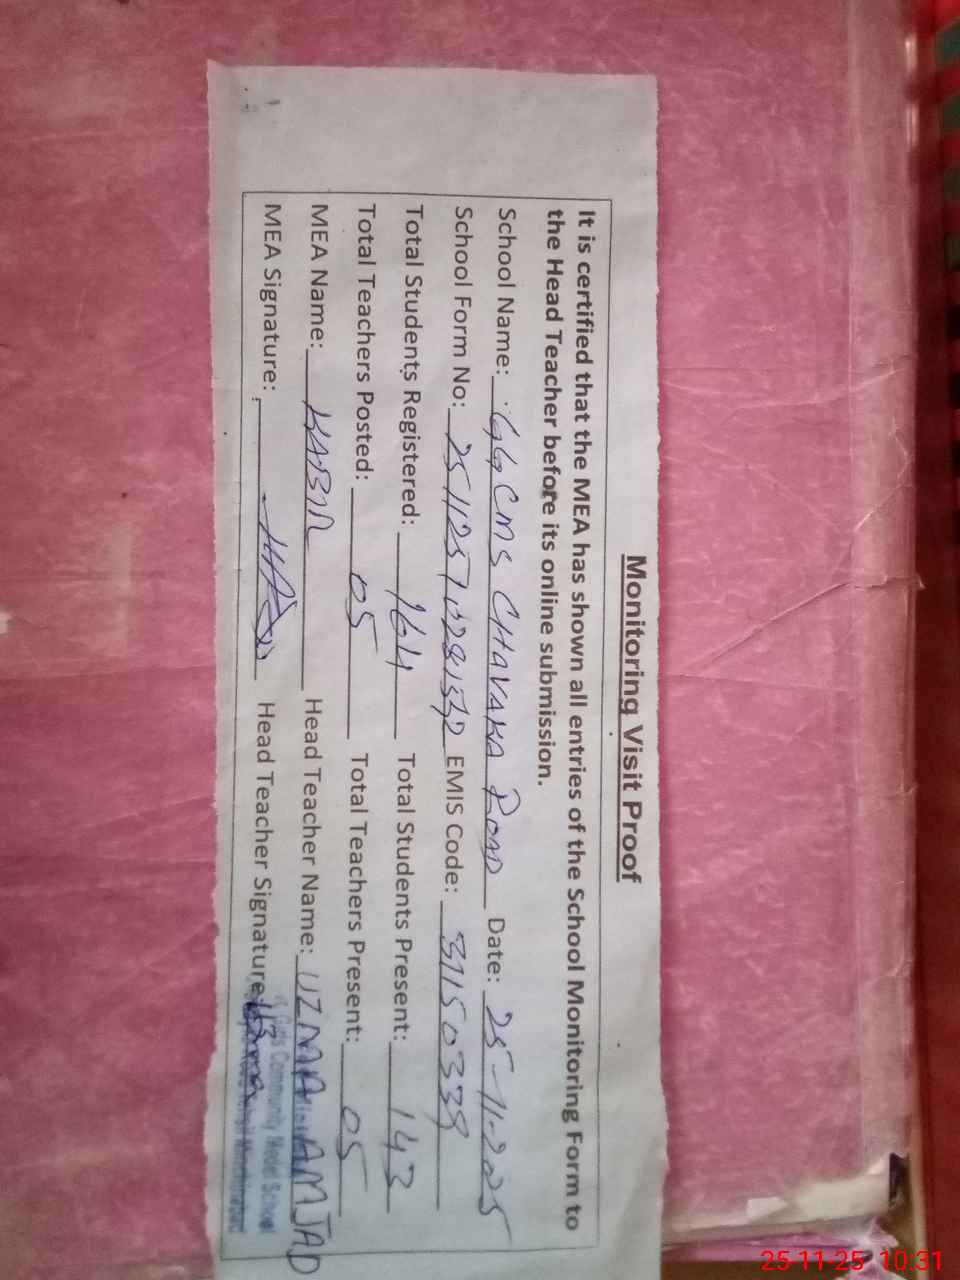 Monitoring Visit Proof
It is certified that the MEA has shown all entries of the School Monitoring Form to
the Head Teacher before its online submission.
School Name: GGCMS CHAVAKA ROAD Date: 25-11-2025
School Form No: EMIS Code: 31150339
Total Students Registered: 164 Total Students Present: 143
Total Teachers Posted: 05 Total Teachers Present: 05
MEA Name: KABIR Head Teacher Name: UZMA AMJAD
MEA Signature: Head Teacher Signature:
Girls Community Model School
25-11-25 10:31